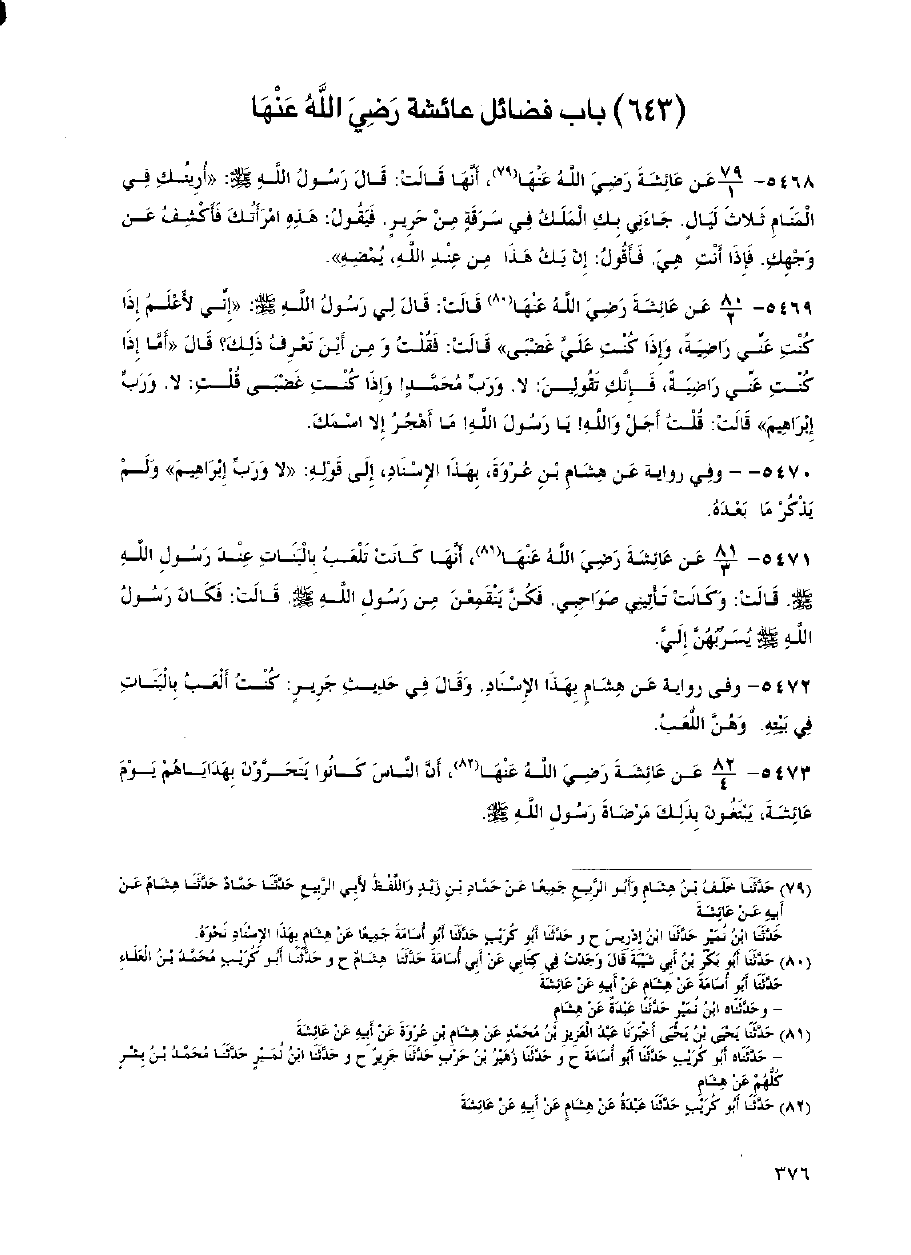 (٦٤٣) باب فضائل عائشة رَضِيَ اللَّهُ عَنْهَا
٥٤٦٨- ٧٩/١ عَن عَائِشَةَ رَضِيَ اللَّهُ عَنْهَا(٧٩)، أَنَّهَا قَالَتْ: قَالَ رَسُولُ اللَّهِ ﷺ: «أُرِيتُكِ فِي
الْمَنَامِ ثَلاثَ لَيَالٍ. جَاءَنِي بِكِ الْمَلَكُ فِي سَرَقَةٍ مِنْ حَرِيرٍ. فَيَقُولُ: هَذِهِ امْرَأَتُكَ فَأَكْشِفُ عَن
وَجْهِكِ. فَإِذَا أَنْتِ هِيَ. فَأَقُولُ: إِنْ يَكُ هَذَا مِن عِنْدِ اللَّهِ، يُمْضِهِ».
٥٤٦٩- ٨٠/٢ عَن عَائِشَةَ رَضِيَ اللَّهُ عَنْهَا(٨٠) قَالَتْ: قَالَ لِي رَسُولُ اللَّهِ ﷺ: «إِنِّي لأَعْلَمُ إِذَا
كُنْتِ عَنِّي رَاضِيَةً، وَإِذَا كُنْتِ عَلَيَّ غَضْبَى» قَالَتْ: فَقُلْتُ وَ مِن أَيْنَ تَعْرِفُ ذَلِكَ؟ قَالَ «أَمَّا إِذَا
كُنْتِ عَنِّي رَاضِيَةً، فَإِنَّكِ تَقُولِينَ: لا. وَرَبِّ مُحَمَّدٍ! وَإِذَا كُنْتِ غَضْبَى قُلْتِ: لا. وَرَبِّ
إِبْرَاهِيمَ» قَالَتْ: قُلْتُ أَجَلْ وَاللَّهِ! يَا رَسُولَ اللَّهِ! مَا أَهْجُرُ إِلا اسْمَكَ.
٥٤٧٠- - وفِي رواية عَن هِشَامِ بْنِ عُرْوَةَ، بِهَذَا الإِسْنَادِ، إِلَى قَوْلِهِ: «لا وَرَبِّ إِبْرَاهِيمَ» وَلَمْ
يَذْكُرْ مَا بَعْدَهُ.
٥٤٧١- ٨١/٣ عَن عَائِشَةَ رَضِيَ اللَّهُ عَنْهَا(٨١)، أَنَّهَا كَانَتْ تَلْعَبُ بِالْبَنَاتِ عِنْدَ رَسُولِ اللَّهِ
ﷺ. قَالَتْ: وَكَانَتْ تَأْتِينِي صَوَاحِبِي. فَكُنَّ يَنْقَمِعْنَ مِن رَسُولِ اللَّهِ ﷺ. قَالَتْ: فَكَانَ رَسُولُ
اللَّهِ ﷺ يُسَرِّبُهُنَّ إِلَيَّ.
٥٤٧٢- وفى رواية عَن هِشَامٍ بِهَذَا الإِسْنَادِ. وَقَالَ فِي حَدِيثِ جَرِيرٍ: كُنْتُ أَلْعَبُ بِالْبَنَاتِ
فِي بَيْتِهِ. وَهُنَّ اللُّعَبُ.
٥٤٧٣- ٨٢/٤ عَن عَائِشَةَ رَضِيَ اللَّهُ عَنْهَا(٨٢)، أَنَّ النَّاسَ كَانُوا يَتَحَرَّوْنَ بِهَدَايَاهُمْ يَوْمَ
عَائِشَةَ، يَبْتَغُونَ بِذَلِكَ مَرْضَاةَ رَسُولِ اللَّهِ ﷺ.
(٧٩) حَدَّثَنَا خَلَفُ بْنُ هِشَامٍ وَأَبُو الرَّبِيعِ جَمِيعًا عَنْ حَمَّادِ بْنِ زَيْدٍ وَاللَّفْظُ لأَبِي الرَّبِيعِ حَدَّثَنَا حَمَّادٌ حَدَّثَنَا هِشَامٌ عَنْ
أَبِيهِ عَنْ عَائِشَةَ
حَدَّثَنَا ابْنُ نُمَيْرٍ حَدَّثَنَا ابْنُ إِدْرِيسَ ح و حَدَّثَنَا أَبُو كُرَيْبٍ حَدَّثَنَا أَبُو أُسَامَةَ جَمِيعًا عَنْ هِشَامٍ بِهَذَا الإِسْنَادِ نَحْوَهُ.
(٨٠) حَدَّثَنَا أَبُو بَكْرِ بْنُ أَبِي شَيْبَةَ قَالَ وَجَدْتُ فِي كِتَابِي عَنْ أَبِي أُسَامَةَ حَدَّثَنَا هِشَامٌ ح و حَدَّثَنَا أَبُو كُرَيْبٍ مُحَمَّدُ بْنُ الْعَلَاءِ
حَدَّثَنَا أَبُو أُسَامَةَ عَنْ هِشَامٍ عَنْ أَبِيهِ عَنْ عَائِشَةَ
- و حَدَّثَنَاه ابْنُ نُمَيْرٍ حَدَّثَنَا عَبْدَةُ عَنْ هِشَامٍ
(٨١) حَدَّثَنَا يَحْيَى بْنُ يَحْيَى أَخْبَرَنَا عَبْدُ الْعَزِيزِ بْنُ مُحَمَّدٍ عَنْ هِشَامِ بْنِ عُرْوَةَ عَنْ أَبِيهِ عَنْ عَائِشَةَ
- حَدَّثَنَاه أَبُو كُرَيْبٍ حَدَّثَنَا أَبُو أُسَامَةَ ح و حَدَّثَنَا زُهَيْرُ بْنُ حَرْبٍ حَدَّثَنَا جَرِيرٌ ح و حَدَّثَنَا ابْنُ نُمَيْرٍ حَدَّثَنَا مُحَمَّدُ بْنُ بِشْرٍ
كُلُّهُمْ عَنْ هِشَامٍ
(٨٢) حَدَّثَنَا أَبُو كُرَيْبٍ حَدَّثَنَا عَبْدَةُ عَنْ هِشَامٍ عَنْ أَبِيهِ عَنْ عَائِشَةَ
٣٧٦